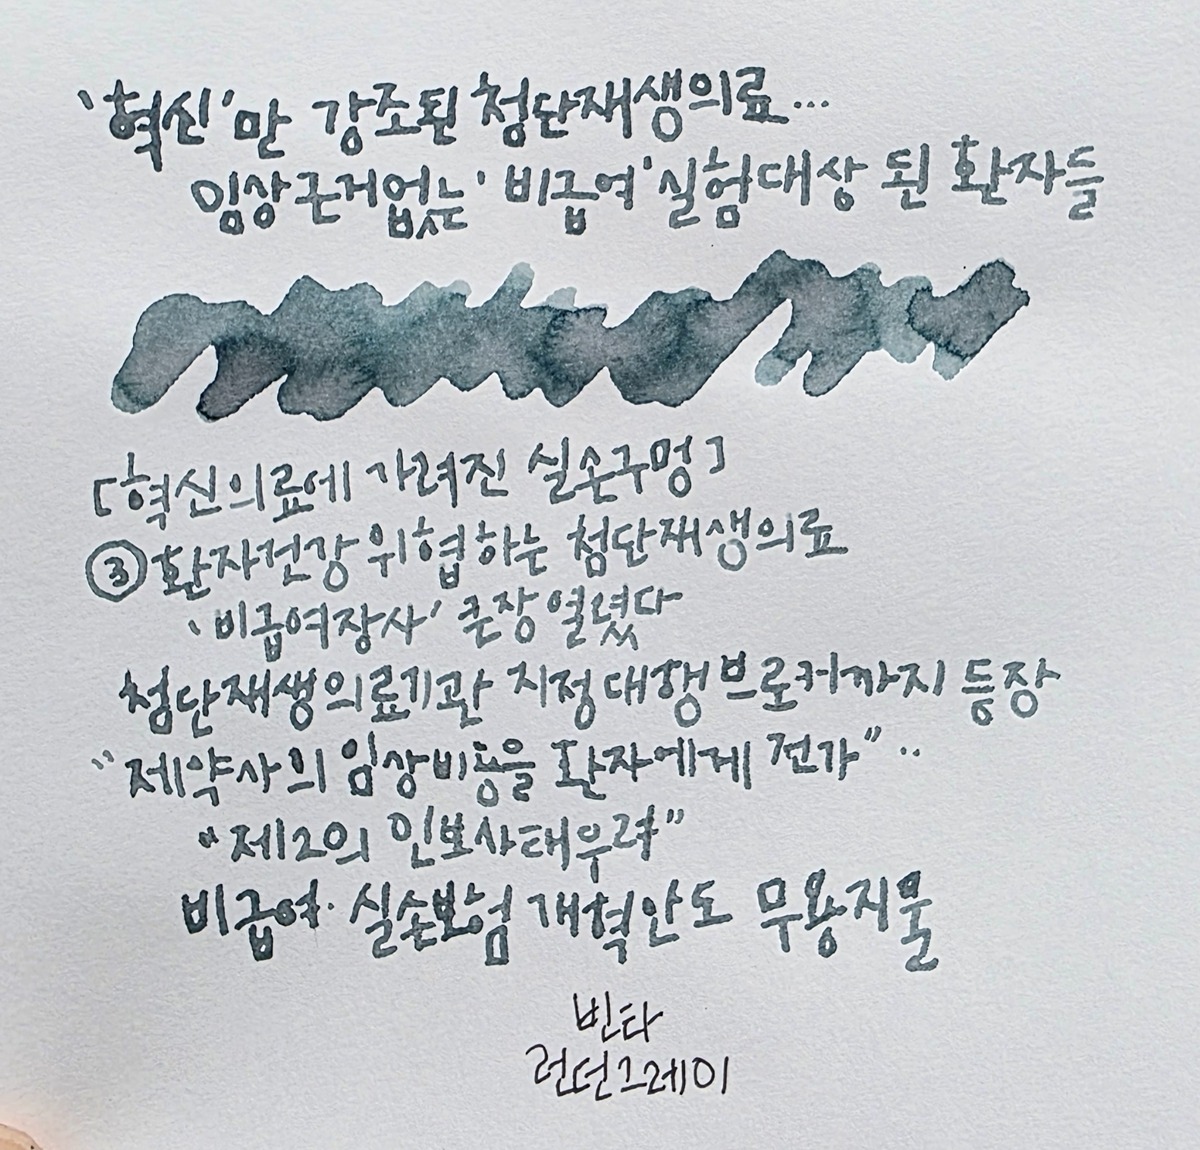 '혁신'만 강조된 첨단재생의료...
임상근거없는 '비급여' 실험대상 된 환자들
[혁신의료에 가려진 실손구멍]
③ 환자건강 위협하는 첨단재생의료
'비급여장사' 큰장 열렸다
첨단재생의료기관 지정대행브로커까지 등장
"제약사의 임상비용을 환자에게 전가"..
"제2의 인보사태우려"
비급여·실손보험 개혁안도 무용지물
빈타
런던그레이